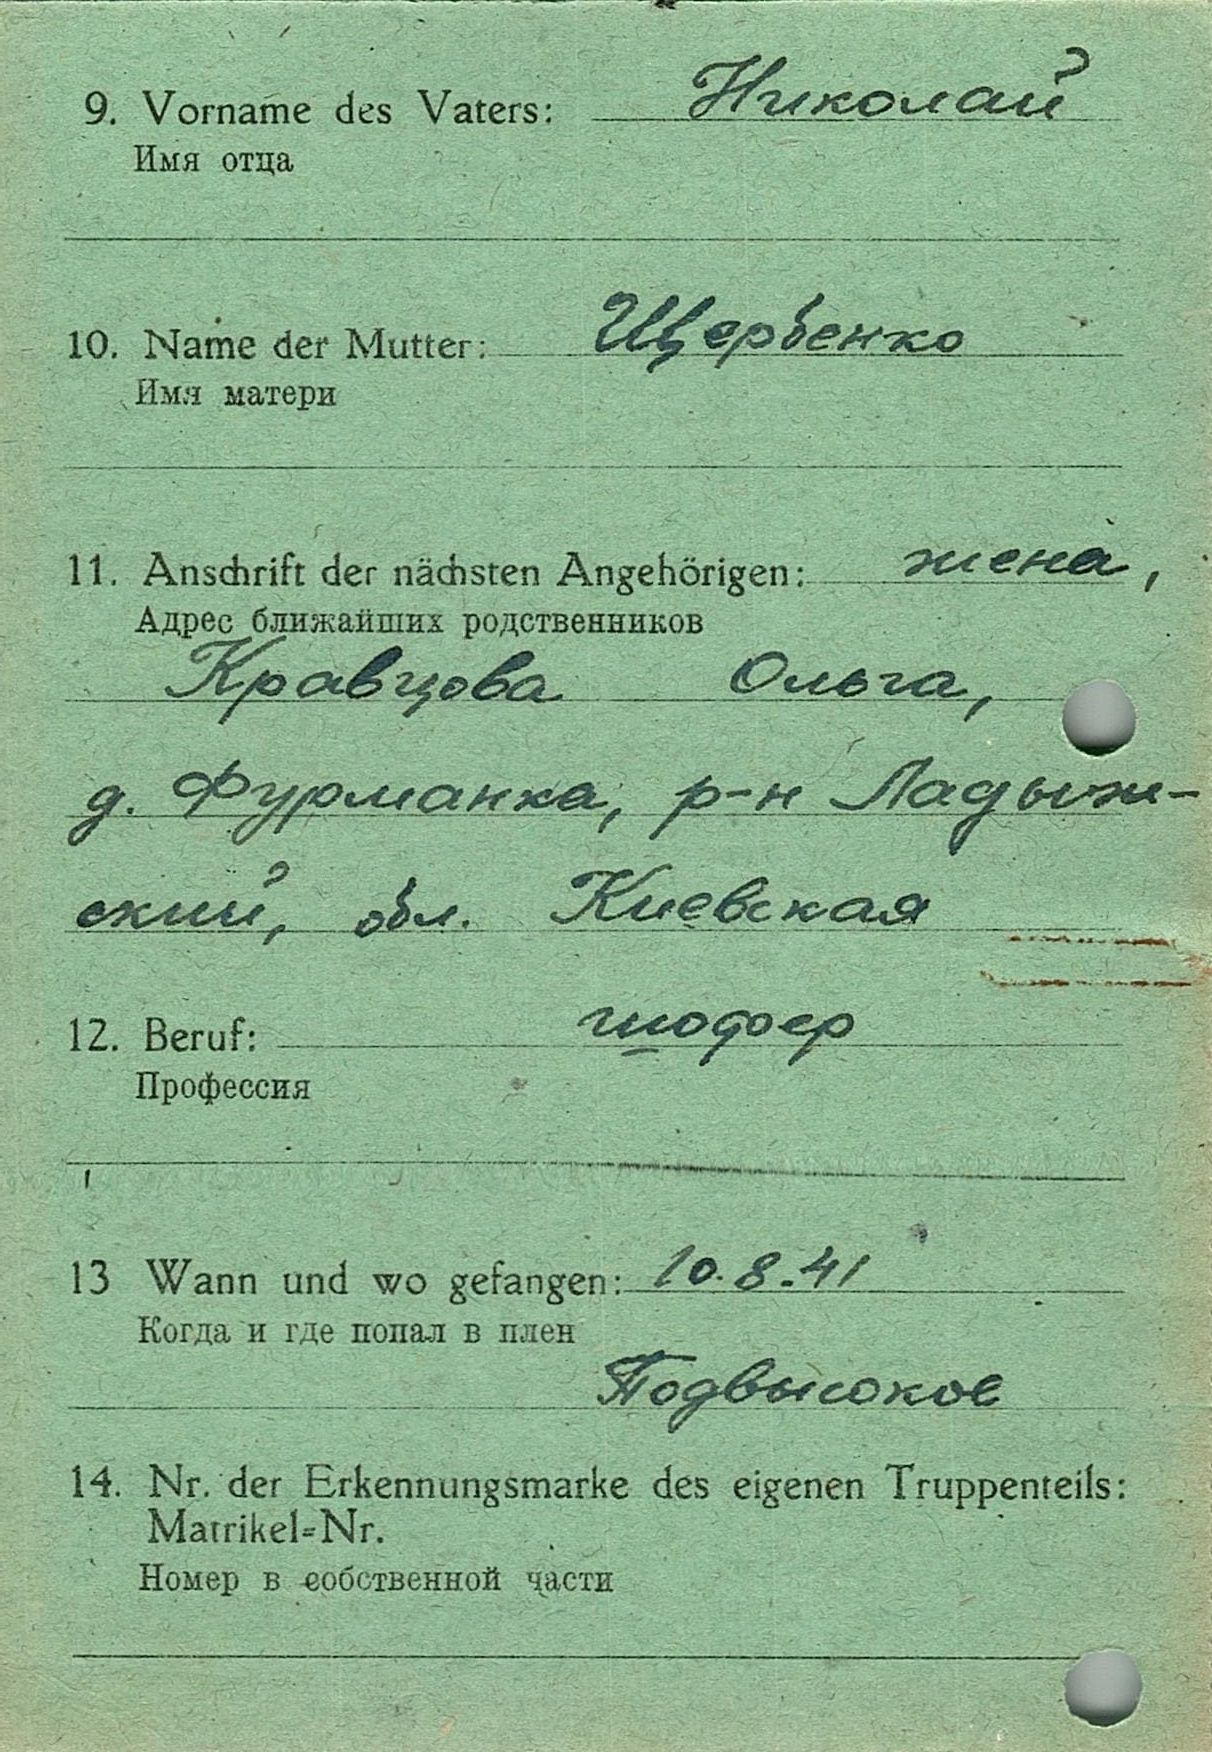 9. Vorname des Vaters: Николай
Имя отца
10. Name der Mutter: Щербенко
Имя матери
11. Anschrift der nächsten Angehörigen: жена,
Адрес ближайших родственников
Кравцова Ольга,
д. Фурманка, р-н Ладыж-
ский, обл. Киевская
12. Beruf: шофер
Профессия
13 Wann und wo gefangen: 10.8.41
Когда и где попал в плен
Подвысокое
14. Nr. der Erkennungsmarke des eigenen Truppenteils:
Matrikel=Nr.
Номер в собственной части